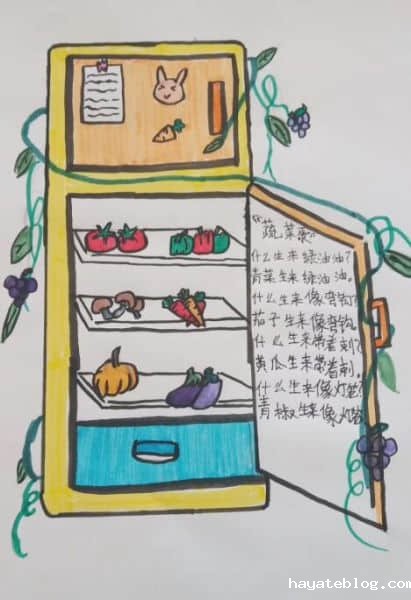 “蔬菜”
什么生来绿油油?
青菜生来绿油油。
什么生来像弯钩?
茄子生来像弯钩。
什么生来带着刺?
黄瓜生来带着刺。
什么生来像灯笼?
青椒生来像灯笼
hayateblog.com